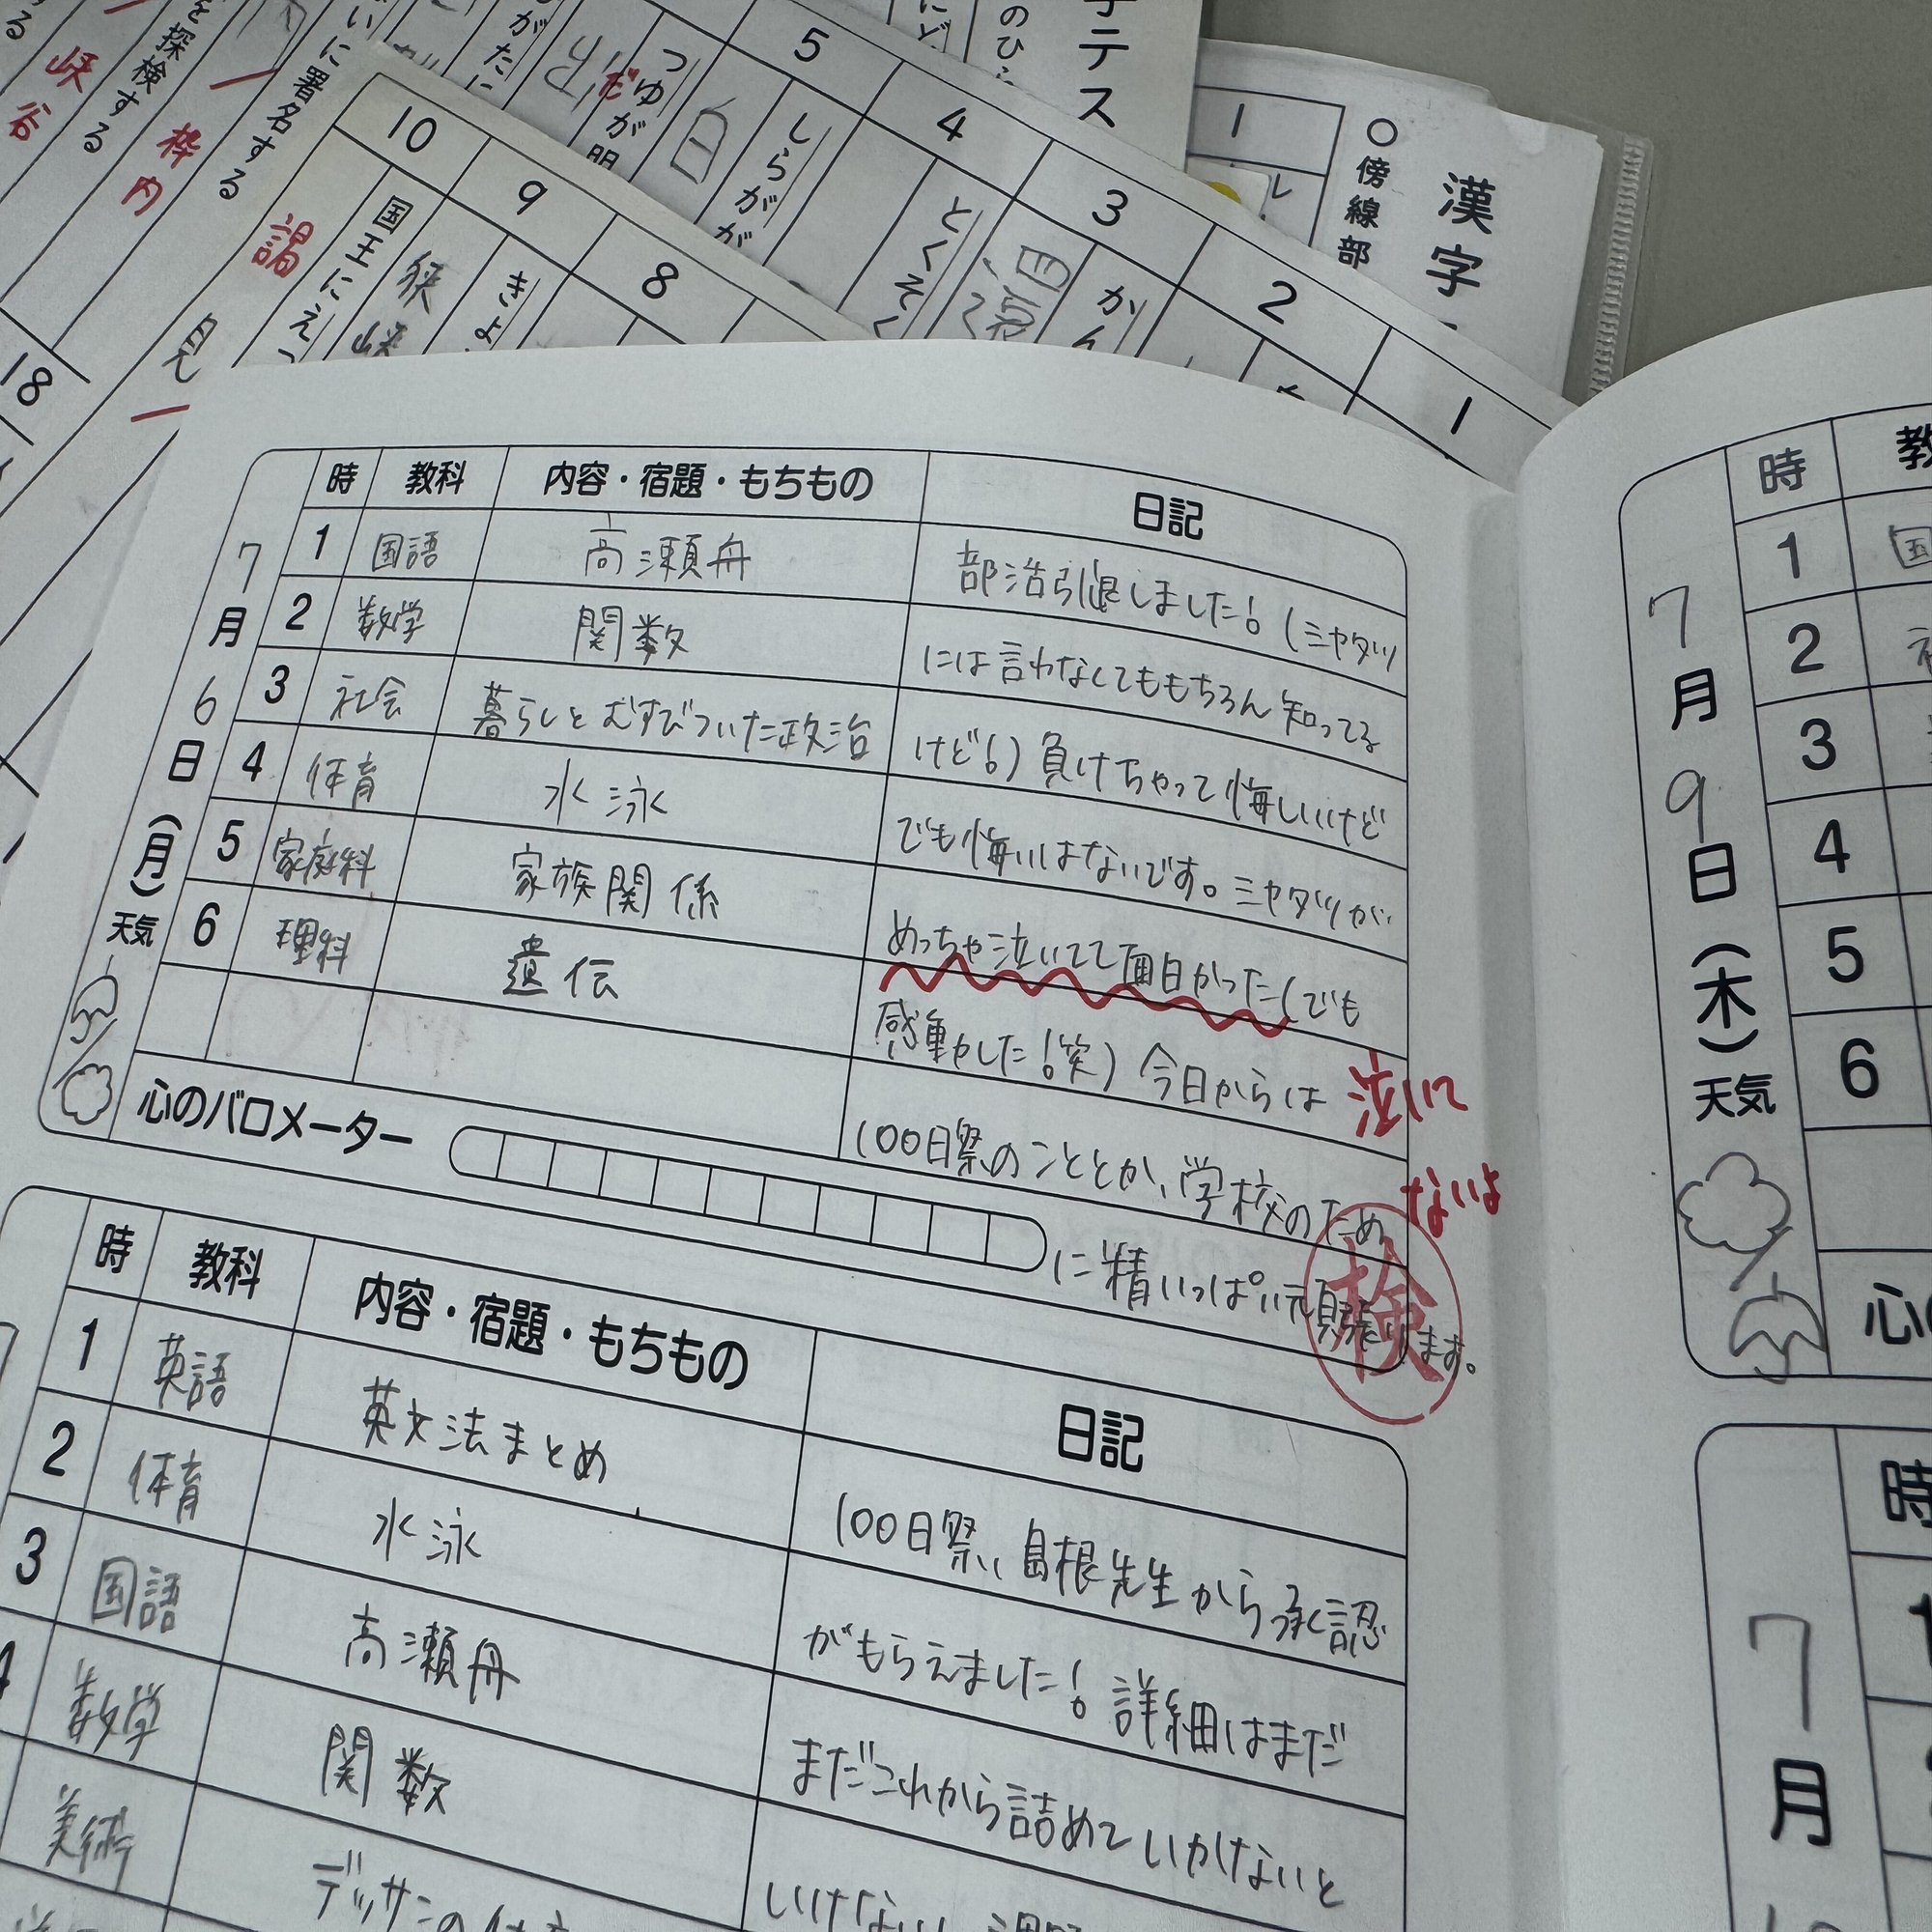 漢字
○傍線部
1
字テス
のひ
1
2
3
かん
4
とくそく
5
しらがが
つゆが明
だ
8
9
きよ
10
国王にえつ
謁
見
に署名する
枠内
を探検する
峡谷
18
時 教科 内容・宿題・もちもの 日記
7月6日(月)天気
1 国語 高瀬舟
2 数学 関数
3 社会 暮らしとむすびついた政治
4 体育 水泳
5 家庭科 家族関係
6 理科 遺伝
部活引退しました!(ミヤタツ
には言わなくてももちろん知ってる
けど!)負けちゃって悔しいけど
でも悔いはないです。ミヤタツが
めっちゃ泣いてて面白かった(でも
感動した!笑)今日からは
100日祭のこととか、学校のため
に精いっぱい頑張ります。
泣いて
ないよ
検
心のバロメーター
時 教科 内容・宿題・もちもの 日記
1 英語 英文法まとめ
2 体育 水泳
3 国語 高瀬舟
数学 関数
美術 デッサンの
100日祭、島根先生から承認
がもらえました!詳細はまだ
まだこれから詰めていかないと
いけない
時 教
7月9日(木)天気
1 国
2
3
4
5
6
心の
時
7月